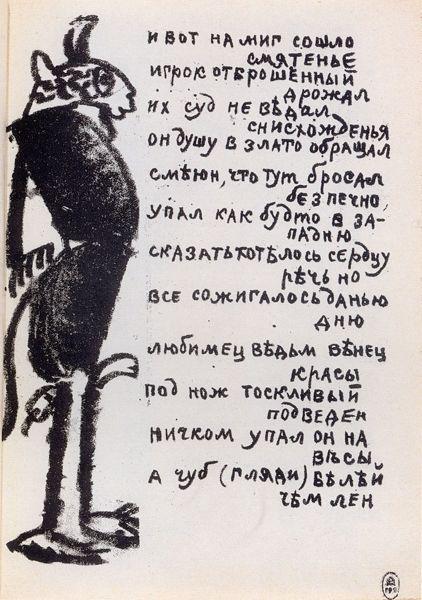 И ВОТ НА МИГ СОШЛО
СМЯТЕНЬЕ
ИГРОК ОТБРОШЕННЫЙ
ДРОЖАЛ
ИХ СУД НЕ ВѢДАЛ
СНИСХОЖДЕНЬЯ
ОН ДУШУ В ЗЛАТО ОБРАЩАЛ
СМѢЮН, ЧТО ТУТ БРОСАЛ
БЕЗПЕЧНО,
УПАЛ КАК БУДТО В ЗА-
ПАДНЮ
СКАЗАТЬ ХОТѢЛОСЬ СЕРДЦУ
РѢЧЬ НО
ВСЕ СОЖИГАЛОСЬ ДАНЬЮ
ДНЮ
ЛЮБИМЕЦ ВѢДЬМ ВѢНЕЦ
КРАСЫ
ПОД НОЖ ТОСКЛИВЫЙ
ПОДВЕДЕН
НИЧКОМ УПАЛ ОН НА
ВѢСЫ,
А ЧУБ (ГЛЯДИ) БѢЛѢЙ
ЧѢМ ЛЕН